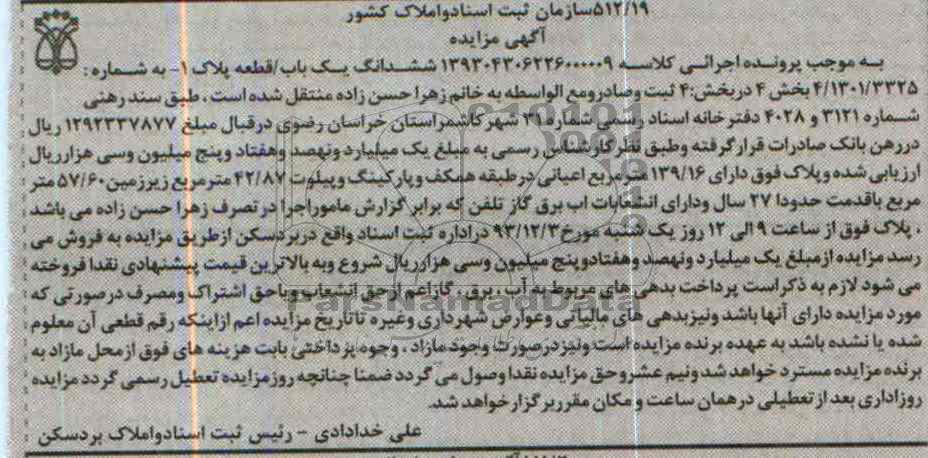 ۵۱۲/۱۹سازمان ثبت اسنادواملاک کشور
آگهی مزایده
به موجب پرونده اجرائی کلاسه ۱۳۹۳۰۴۳۰۶۲۲۶۰۰۰۰۰۹ ششدانگ یک باب/قطعه پلاک ۱- به شماره :
۴/۱۳۰۱/۳۳۲۵ بخش ۴ دربخش:۴ ثبت وصادرومع الواسطه به خانم زهرا حسن زاده منتقل شده است ، طبق سند رهنی
شماره ۳۱۲۱ و ۴۰۲۸ دفترخانه اسناد رسمی شماره ۳۱ شهرکاشمراستان خراسان رضوی درقبال مبلغ ۱۲۹۲۳۳۷۸۷۷ ریال
دررهن بانک صادرات قرارگرفته وطبق نظرکارشناس رسمی به مبلغ یک میلیارد ونهصد وهفتاد وپنج میلیون وسی هزارریال
ارزیابی شده وپلاک فوق دارای ۱۳۹/۱۶ مترمربع اعیانی درطبقه همکف وپارکینگ وپیلوت ۴۲/۸۷ مترمربع زیرزمین۵۷/۶۰ متر
مربع باقدمت حدودا ۲۷ سال ودارای انشعابات اب برق گاز تلفن که برابر گزارش ماموراجرا درتصرف زهرا حسن زاده می باشد
، پلاک فوق از ساعت ۹ الی ۱۲ روز یک شنبه مورخ۹۳/۱۲/۳ دراداره ثبت اسناد واقع دربردسکن ازطریق مزایده به فروش می
رسد مزایده ازمبلغ یک میلیارد ونهصد وهفتادوپنج میلیون وسی هزارریال شروع وبه بالاترین قیمت پیشنهادی نقدا فروخته
می شود لازم به ذکراست پرداخت بدهی های مربوط به آب ، برق ، گازاعم ازحق انشعاب ویاحق اشتراک ومصرف درصورتی که
مورد مزایده دارای آنها باشد ونیزبدهی های مالیاتی وعوارض شهرداری وغیره تاتاریخ مزایده اعم ازاینکه رقم قطعی آن معلوم
شده یا نشده باشد به عهده برنده مزایده است ونیزدرصورت وجودمازاد ، وجوه پرداختی بابت هزینه های فوق ازمحل مازاد به
برنده مزایده مسترد خواهد شدونیم عشروحق مزایده نقدا وصول می گردد ضمنا چنانچه روزمزایده تعطیل رسمی گردد مزایده
روزاداری بعد ازتعطیلی درهمان ساعت ومکان مقرربرگزارخواهد شد.
علی خدادادی - رئیس ثبت اسنادواملاک بردسکن
ParsNamadData